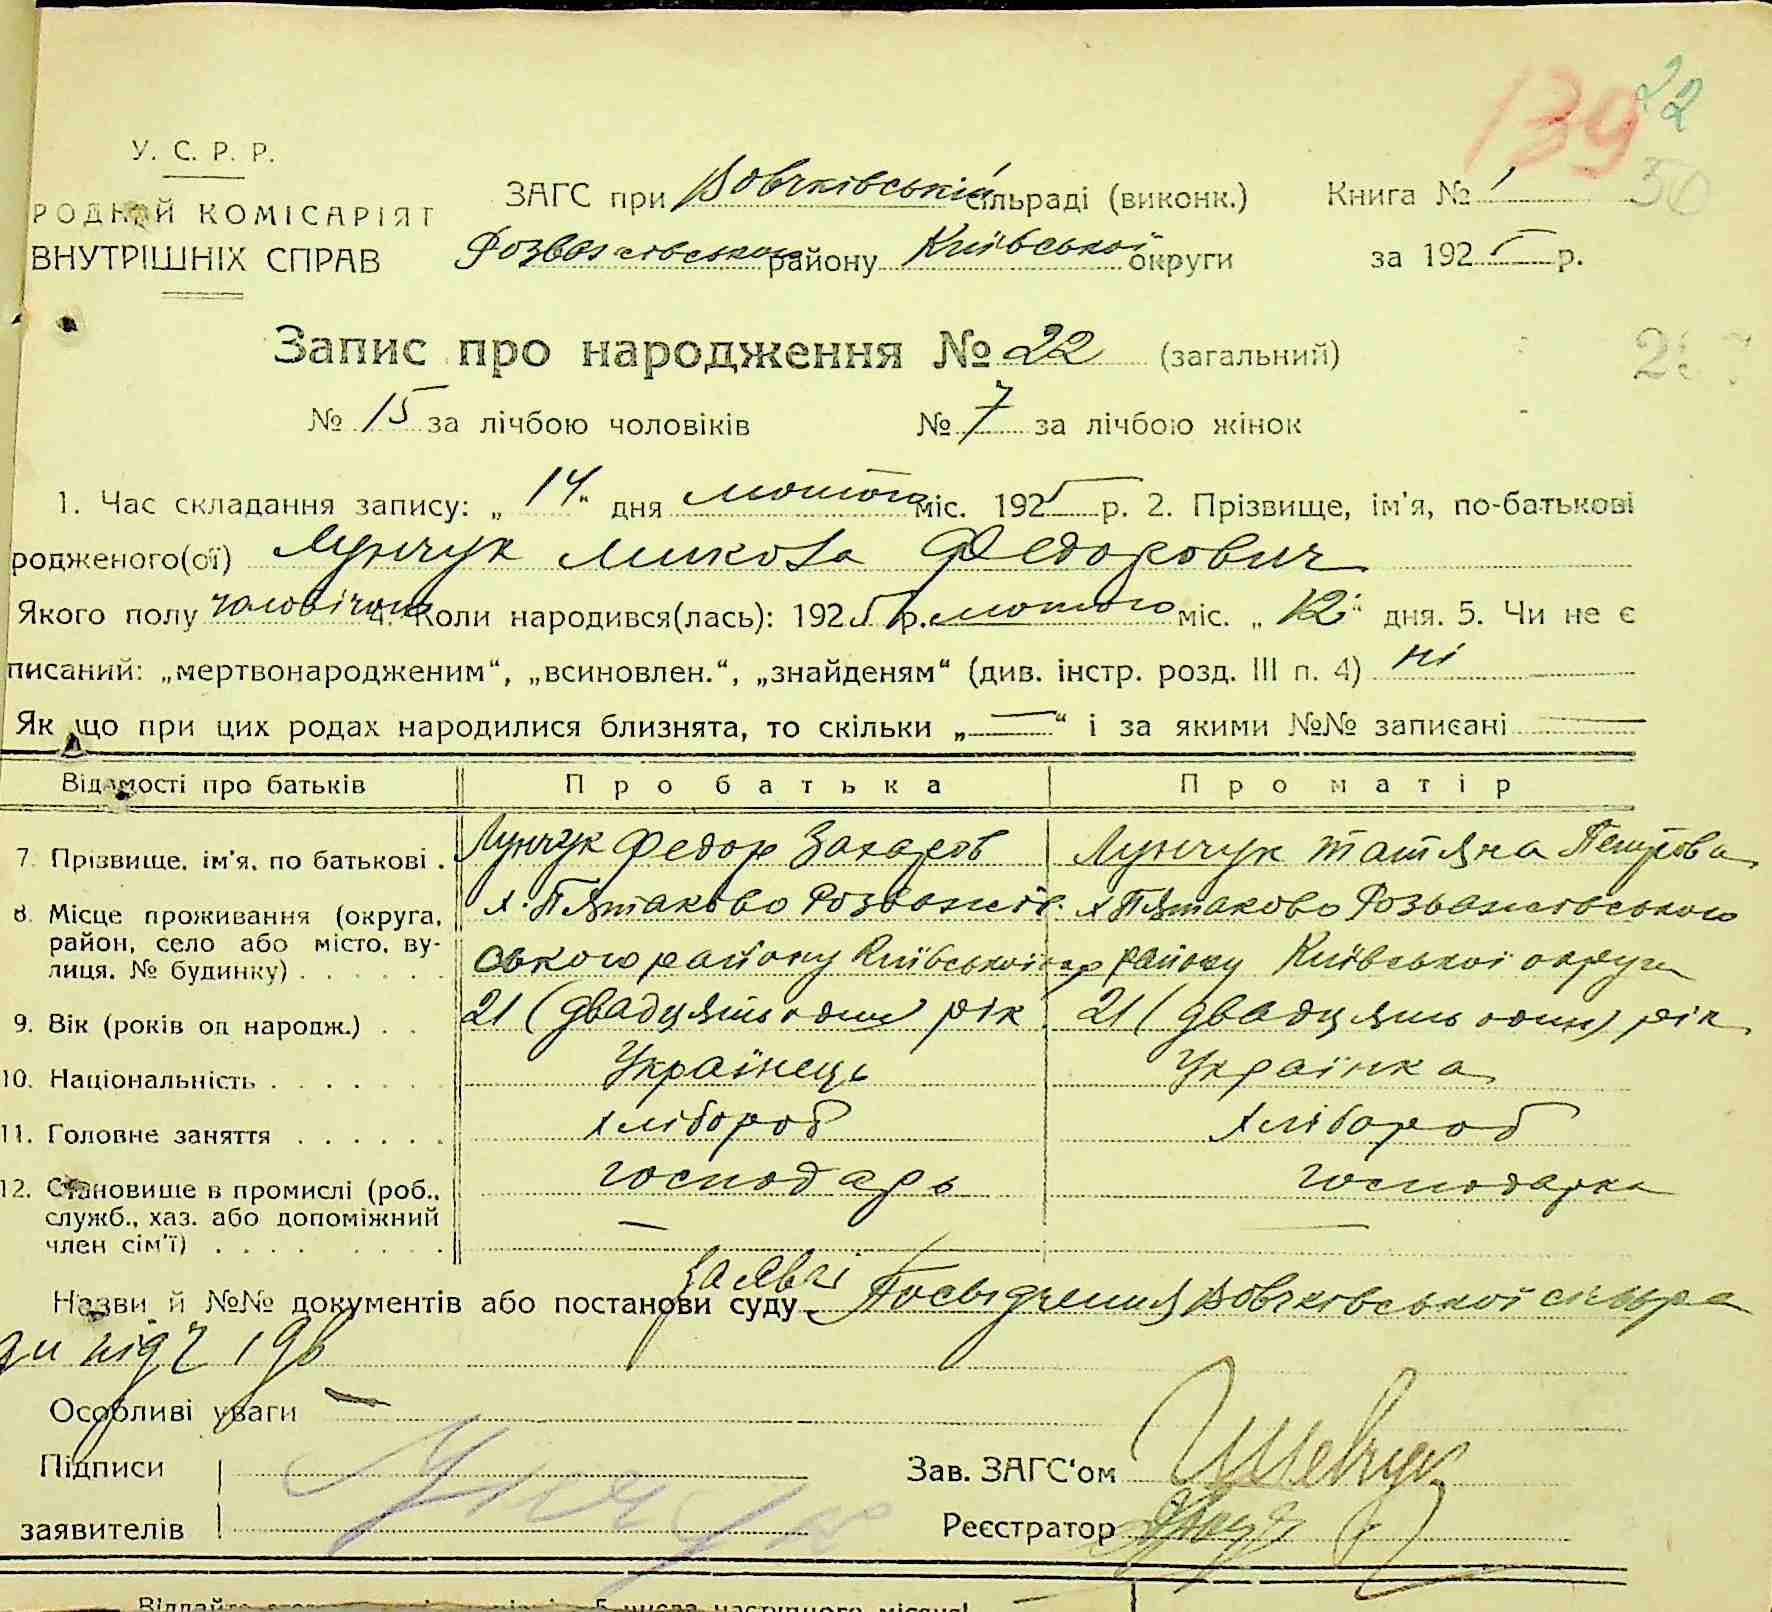 22
139
50
У. С. Р. Р.
РОДНИЙ КОМІСАРІЯТ
ВНУТРІШНІХ СПРАВ
ЗАГС при Вовчківській сільраді (виконк.) Книга № 1
Розважівського району Київської округи за 1925 р.
Запис про народження № 22 (загальний)
№ 15 за лічбою чоловіків № 7 за лічбою жінок
1. Час складання запису: „14“ дня лютого міс. 1925 р. 2. Прізвище, ім'я, по-батькові
родженого(ої) Лунчук Микола Федорович
Якого полу чоловічого 4. Коли народився(лась): 1925 р. лютого міс. „12“ дня. 5. Чи не є
писаний: „мертвонародженим“, „всиновлен.“, „знайденям“ (див. інстр. розд. III п. 4) ні
Як що при цих родах народилися близнята, то скільки „—“ і за якими №№ записані —
Відомості про батьків Про батька Про матір
7. Прізвище, ім'я, по батькові . Лунчук Федор Захаров Лунчук Татяна Петрова
8. Місце проживання (округа, район, село або місто, вулиця, № будинку) х. Пятаково Розважівського району Київської окр х Пятаково Розважівського району Київської округи
9. Вік (років од народж.) . . 21 (двадцять один) рік 21 (двадцять один) рік
10. Національність . . . . . . . Українець Українка
11. Головне заняття . . . . . . хлібороб хлібороб
12. Становище в промислі (роб., служб., хаз. або допоміжний член сім'ї) . . . . господарь — господарка —
Назви й №№ документів або постанови суду заяві Посьідчення Вовчківської сільра
ди під ч 196
Особливі уваги —
Підписи Зав. ЗАГС'ом Шевчук
заявителів Реєстратор
5 числа наступного місяця!